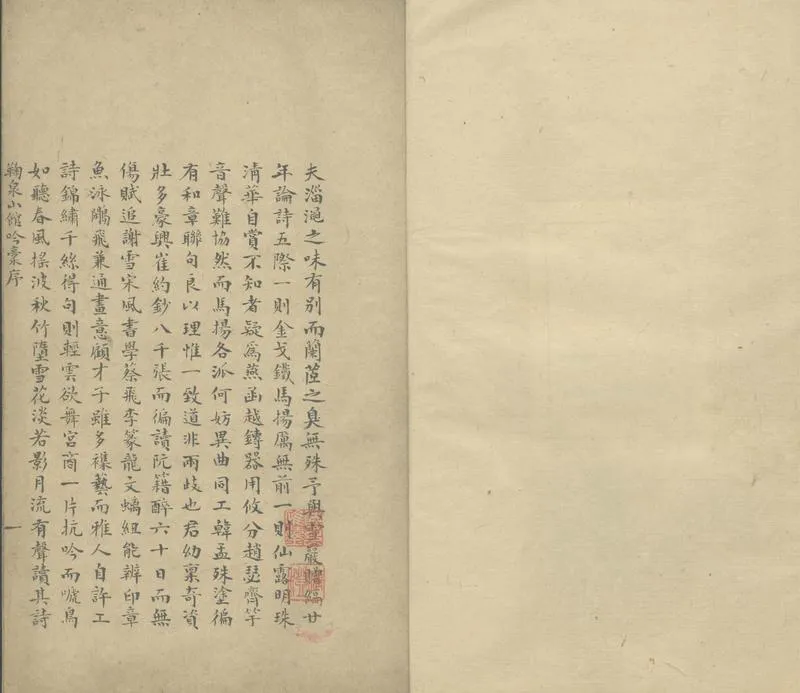 夫淄澠之味有別而蘭茝之臭無殊予與雪巖贈縞廿
年論詩五際一則金戈鐵馬揚厲無前一則仙露明珠
清華自賞不知者疑為燕函越鏄器用攸分趙瑟齊竽
音聲難協然而馬揚各派何妨異曲同工韓孟殊塗徧
有和章聯句良以理惟一致道非兩歧也君幼稟奇資
壯多豪興崔約鈔八千張而徧讀阮籍醉六十日而無
傷賦追謝雪宋風書學蔡飛李篆龍文螭紐能辨印章
魚泳鵰飛兼通畫意顧才子雖多襍藝而雅人自許工
詩錦繡千絲得句則輕雲欲舞宮商一片抗吟而嗁鳥
如聽春風搖波秋竹墮雪花淡若影月流有聲讀其詩
鞠泉小館吟稾序 一